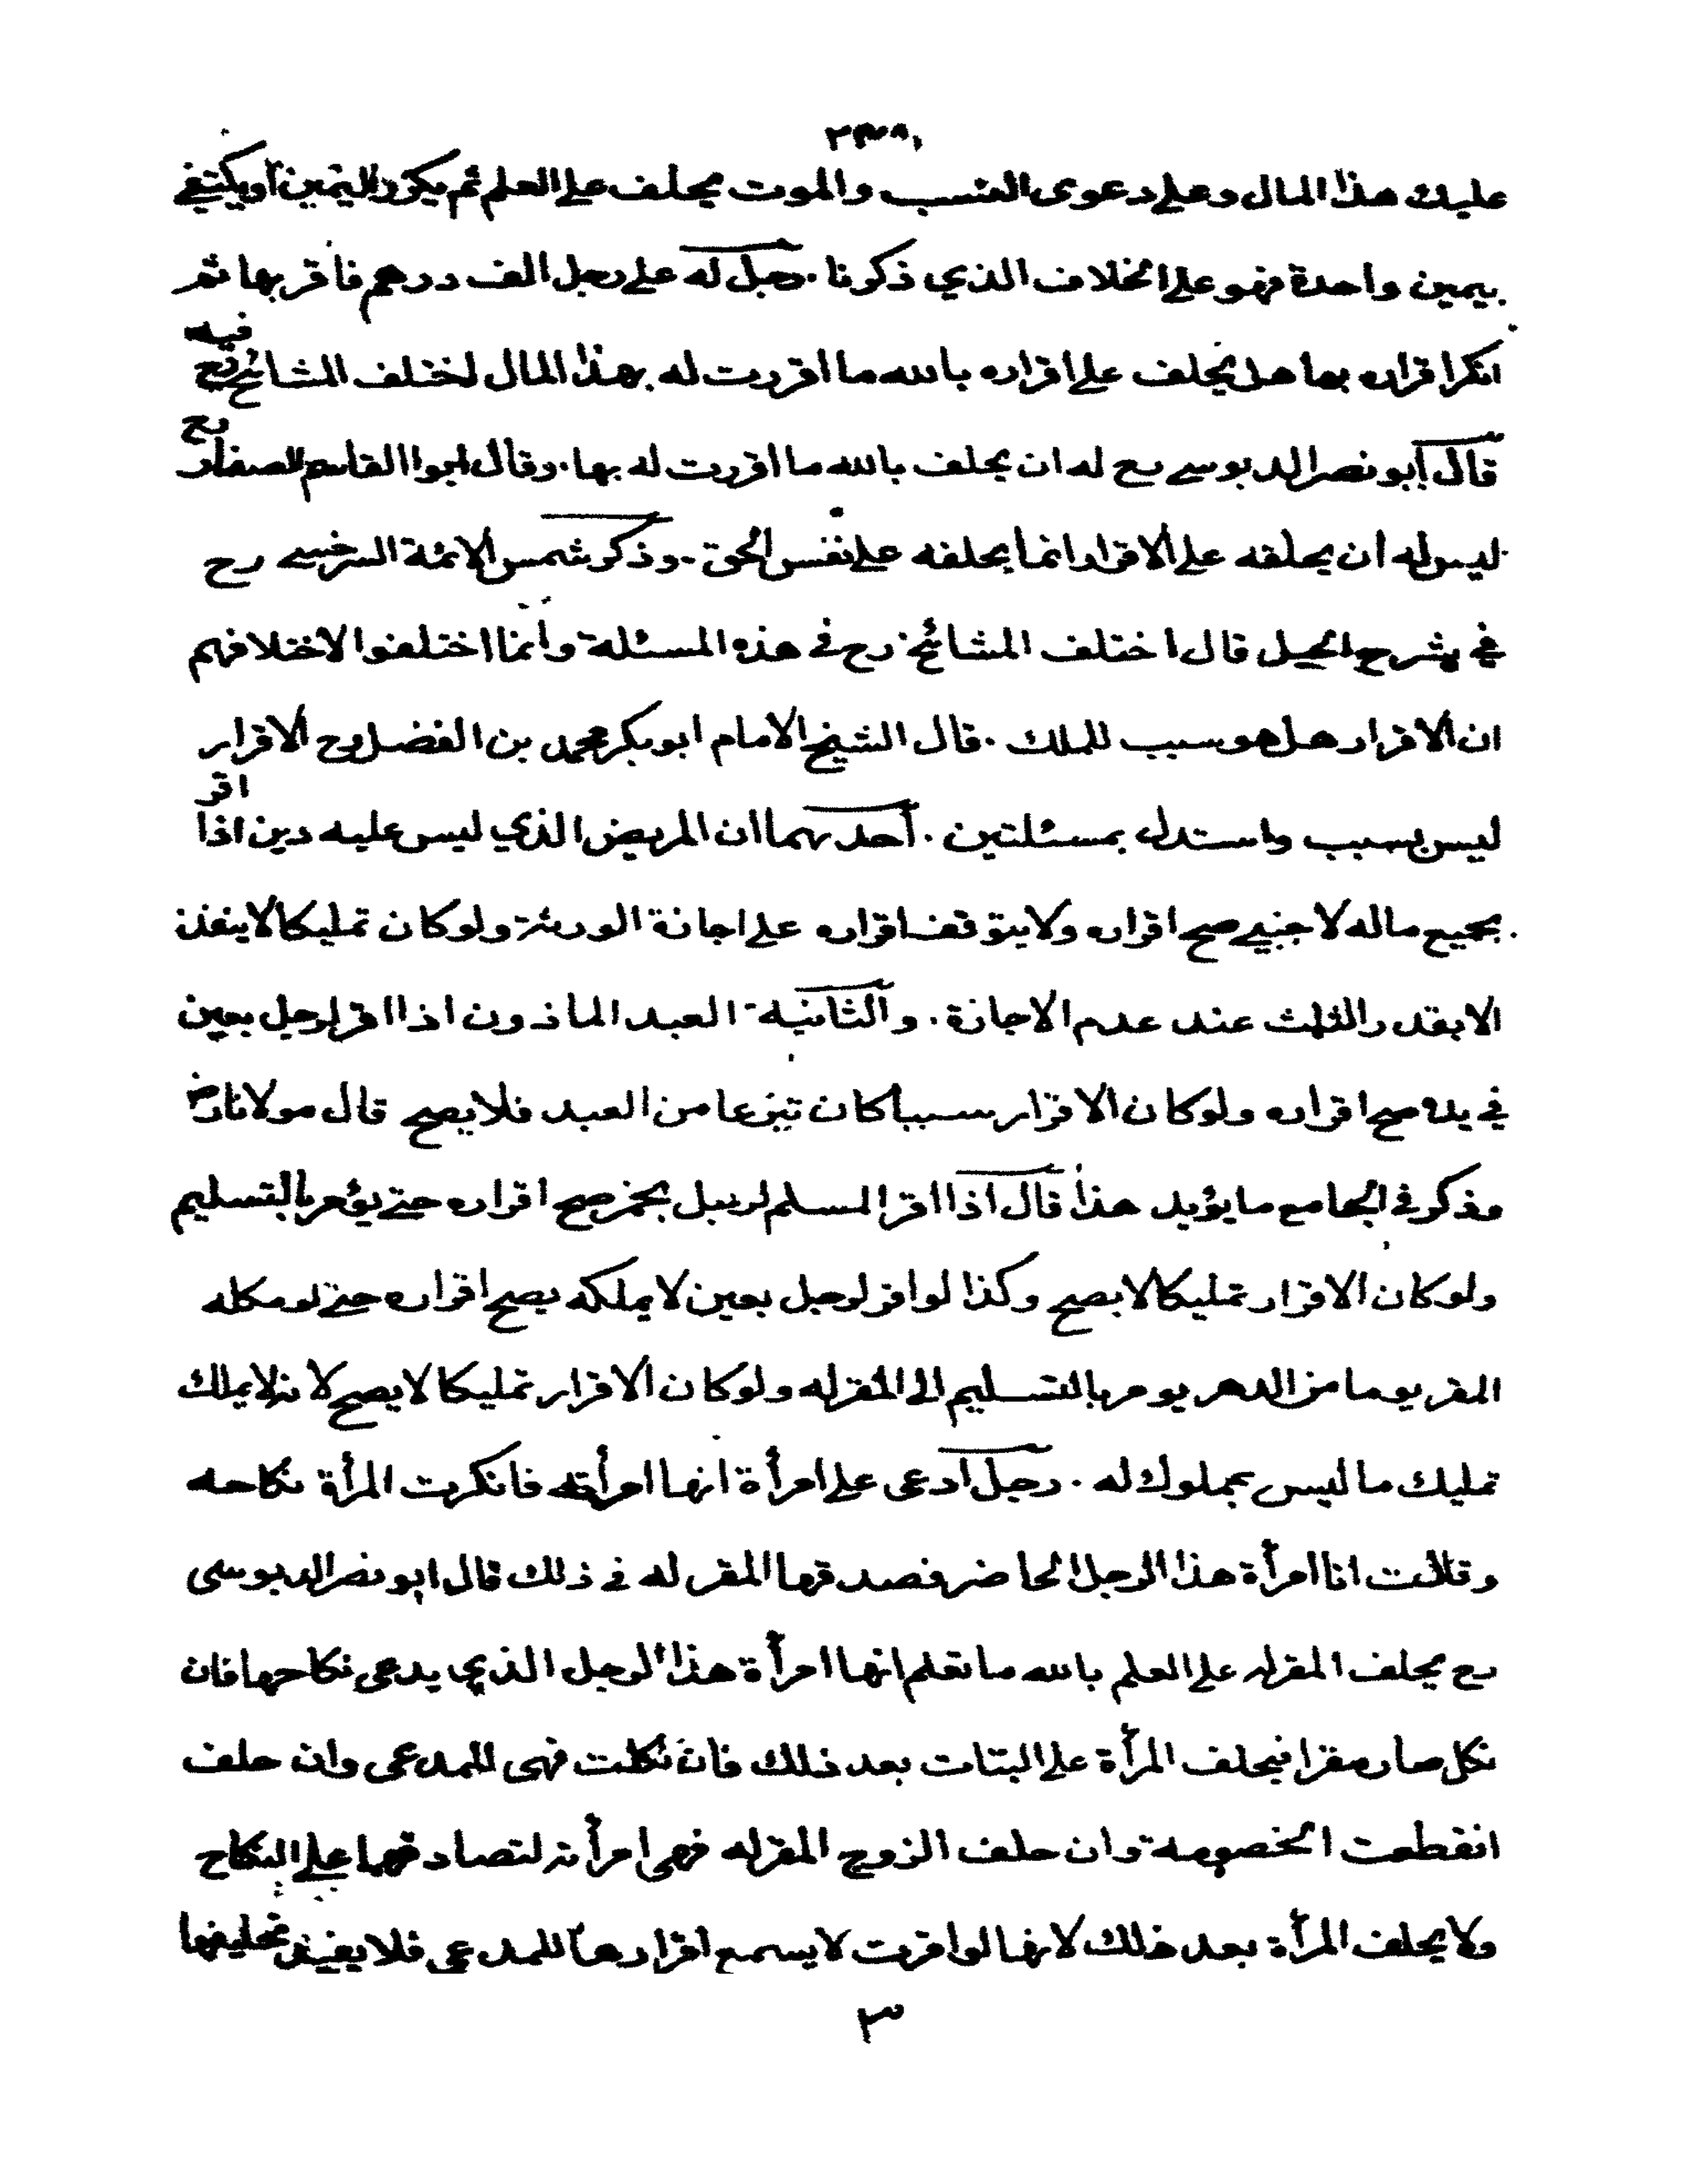 عليك هذا المال وعلى دعوى النسب والموت يحلف على العلم ثم يكرر اليمين أو يكتفي
بيمين واحدة فهو على الخلاف الذي ذكرنا . رجل له على رجل الف درهم فاقر بها ثم
انكر اقراره بها هل يحلف على اقراره بالله ما اقررت له بهذا المال اختلف المشائخ رح فيه
قال أبو نصر الدبوسي رح له ان يحلف بالله ما اقررت له بها . وقال ابوا القاسم الصفار رح
ليس له ان يحلفه على الاقرار انما يحلفه على نفس الحق . وذكر شمس الائمة السرخسي رح
في شرح الحيل قال اختلف المشائخ رح في هذه المسئلة وانما اختلفوا لاختلافهم
ان الاقرار هل هو سبب للملك . قال الشيخ الامام ابو بكر محمد بن الفضل رح الاقرار
ليس بسبب واستدل بمسئلتين . أحدهما ان المريض الذي ليس عليه دين اذا اقر
بجميع ماله لاجنبي صح اقراره ولا يتوقف اقراره على اجازة الورثة ولو كان تمليكا لا ينفذ
الا بقدر الثلث عند عدم الاجازة . والثانية العبد الماذون اذا اقر لرجل بعين
في يده صح اقراره ولو كان الاقرار سببا كان تبرعا من العبد فلا يصح قال مولانا رض
وذكر في الجامع ما يؤيد هذا قال اذا اقر المسلم لرجل بخمر صح اقراره حتى يؤمر بالتسليم
ولو كان الاقرار تمليكا لا يصح وكذا لو اقر لرجل بعين لا يملكه يصح اقراره حتى لو ملكه
المقر يوما من الدهر يومر بالتسليم الى المقر له ولو كان الاقرار تمليكا لا يصح لانه لا يملك
تمليك ما ليس بمملوك له . رجل ادعى على امرأة انها امرأته فانكرت المرأة نكاحه
وقالت انا امرأة هذا الرجل الحاضر فصدقها المقر له في ذلك قال ابو نصر الدبوسى
رح يحلف المقر له على العلم بالله ما تعلم انها امرأة هذا الرجل الذي يدعى نكاحها فان
نكل صار مقرا فيحلف المرأة على البتات بعد ذلك فان نكلت فهى للمدعى وان حلف
انقطعت الخصومة وان حلف الزوج المقر له فهى امرأته لتصادقهما على النكاح
ولا يحلف المرأة بعد ذلك لانها لو اقرت لا يسمع اقرارها للمدعى فلا يفيد تحليفها
٣